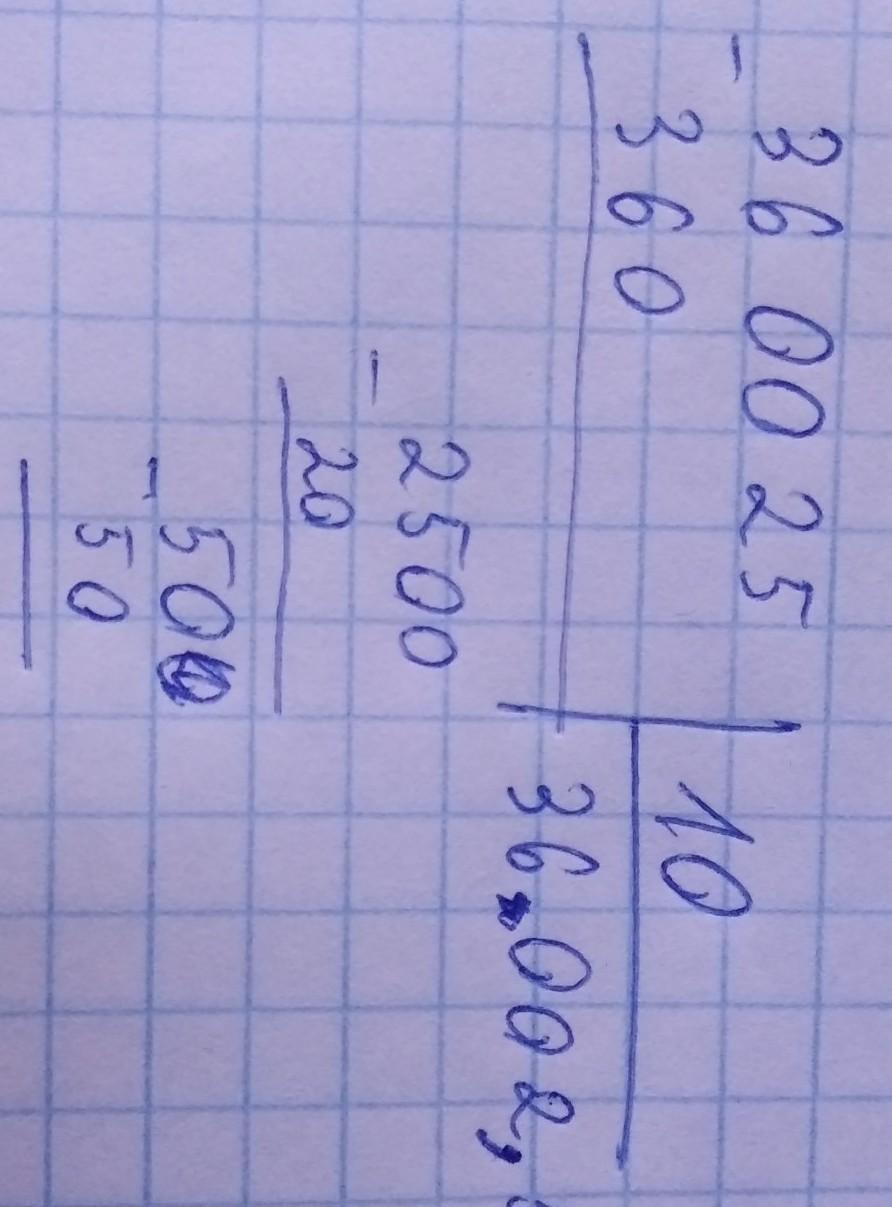 - 36 00 25 | 10
360
36 002,
- 2500
20
- 50
50